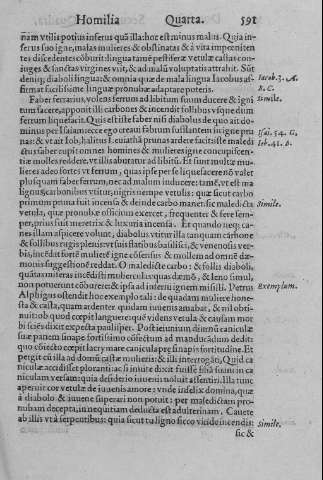 Homilia Quarta. 591
nam vtilis potius inferus quã illa: hoc est minus malus. Quia in-
ferus suo igne, malas mulieres & obstinatas & à vita impœniten
tes discedentes cõburit: lingua tamẽ pestiferæ vetulæ castas con-
iuges & sanctas virgines viuit, & ad malũ voluptatis attrahit. Sũt
deniq; diaboli lingua: & omnia quæ de mala lingua Iacobus af-
firmat facilissime linguæ pronubæ adaptare poteris.
Iacob. 3. A.
B. C.
Faber ferrarius, volens ferrum ad libitum suum ducere & igni
tum facere, apponit illi carbones & incendit follibus vsque dum
Simile.
ferrum liquefacit. Quis est iste faber nisi diabolus de quo ait do-
minus per Isaiam: ecce ego creaui fabrum sufflantem in igne pru
nas: & vt ait Iob, halitus Leuiathã prunas ardere facit: iste maledi
Isai. 54. G.
Iob. 41. B.
ctus faber cupit omnes homines & mulieres igne concupiscen-
tiæ molles reddere, vt illis abutatur ad libitũ. Et sunt multæ mu-
lieres adeo fortes vt ferrum, quas ipse per se liquefacere nõ valet
plusquam faber ferrum, nec ad malum inducere: tamẽ, vt est ma
lignus, carbonibus vtitur, nigris nempe vetulis: quæ sicut carbo
primum pruna fuit incensa & deinde carbo manet: sic maledicta
vetula, quæ pronubæ officium exercet, frequenter & fere sem-
Simile.
per, prius fuit meretrix & luxuria incensa. Et quando neq; ca-
nes illam aspicere volunt, diabolus vtitur illa tanquam carbone
& follibus rugis plenis: vt suis flatibus basilisci, & venenosis ver-
bis, incẽdat fortẽ mulierẽ igne cõsensus & mollem ad omnẽ dæ-
monis suggestionẽ reddat. O maledicte carbo: & follis diaboli,
quãtas mulieres incẽdisti: mulier cuius quæ dæmõ, & leno simul,
non potuerunt cõburere: & ipsa ad inferni ignem misisti. Petrus
Alphigus ostendit hoc exemplo tali: de quadam muliere hone-
Exemplum.
sta & casta, quam ardenter quidam iuuenis amabat, & nil obti-
nuit: ob quod cœpit languere: quẽ videns vetula & causam mor
bi sciẽs dixit expecta paulisper. Post ieiunium diurnũ caniculæ
suæ panem sinape fortissimo cõfectum ad manducãdum dedit:
quo cõfecto cœpit lacrymare canicula præ sinapis fortitudine. Et
pergit cũ illa ad domũ castæ mulieris: & illi interrogãti, Quid ca
niculæ accidisset ploranti: ac si inuite dixit fuisse filiã suam in ca
niculam versam: quia desiderio iuuenis noluit assentiri. Illa tunc
aperuit cor vetulæ de iuuenis amore: vnde infelix domina, quæ
à diabolo & iuuene superari non potuit: per maledictam pro-
nubam decepta, in nequitiam deducta est adulterinam. Cauete
ab illis vt à serpentibus: quia sicut tu ligno sicco vicide incendis:
Simile.
sic &